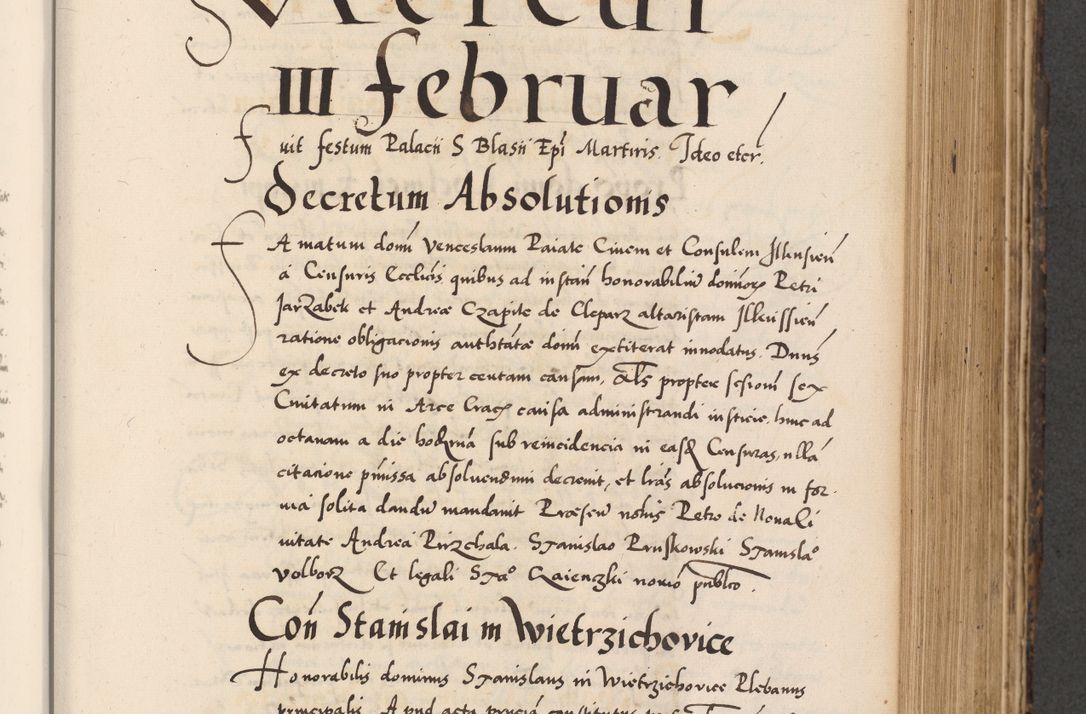 Mercur
III februar
Fuit festum Palacii S Blasii Epi Martiris. Ideo etcr.
Decretum Absolutionis
Famatum domi Venceslaum Raiate Ciuem et Consulem Illkusien
a Censuris Ecclicis quibus ad instan honorabiliu dominorum Petri
Jarzabek et Andreæ Czapite de Cleparz altaristarum Illkussien
ratione obligacionis authtatæ domi extiterat innodatus. Dnus
ex decreto suo propter ceutam causam, Als propter sesioni sex
Ciuitatum in Arce Crac causa administrandi insticie, hinc ad
octauam a die hodierna sub reincidencia in easdem Censuras, vlla
citacione pmissa absoluendum decreuit, et lras absolucionis in for-
ma solita dandu mandauit Præsen nobis Petro de Nouali
uitate Andrea Pirzchala. Stanislao Pruskowski Stanislao
Volborz Et legali Stao Raienczki notio publco.
Con Stanislai in Wietrzichovice
Honorabilis dominus Stanislaus in Wietrzichovice Plebanus
principalis. Apud acta